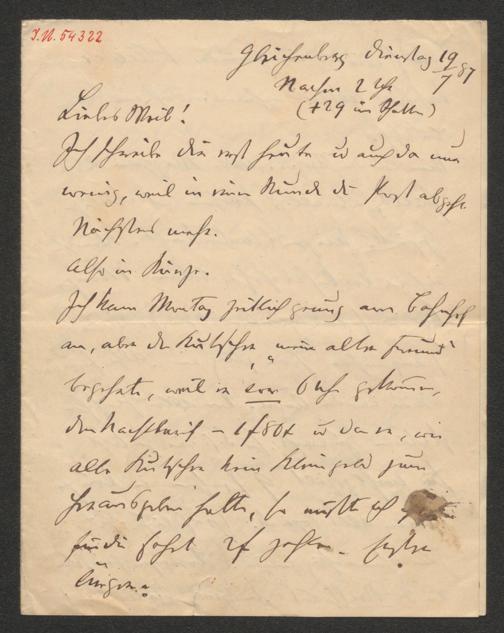 I.N. 54322
Gleichenberg Dienstag 19/7 87
Nachm 2 Uhr
(+29 im Schatten)
Liebes Weib!
Ich schreibe dir erst heute u auch da nur
wenig, weil in einer Stunde die Post abgeht.
Nächstens mehr.
Also in Kürze.
Ich kam Montag zeitlich genug am Bahnhof
an, aber der Kutscher "mein alter Freund"
begehrte, weil er vor 6 Uhr gekommen,
den Nachttarif – 1f 80x u da er, wie
alle Kutscher kein Kleingeld zum
herausgeben hatte, so mußte ich
für die Fahrt 2f zahlen.